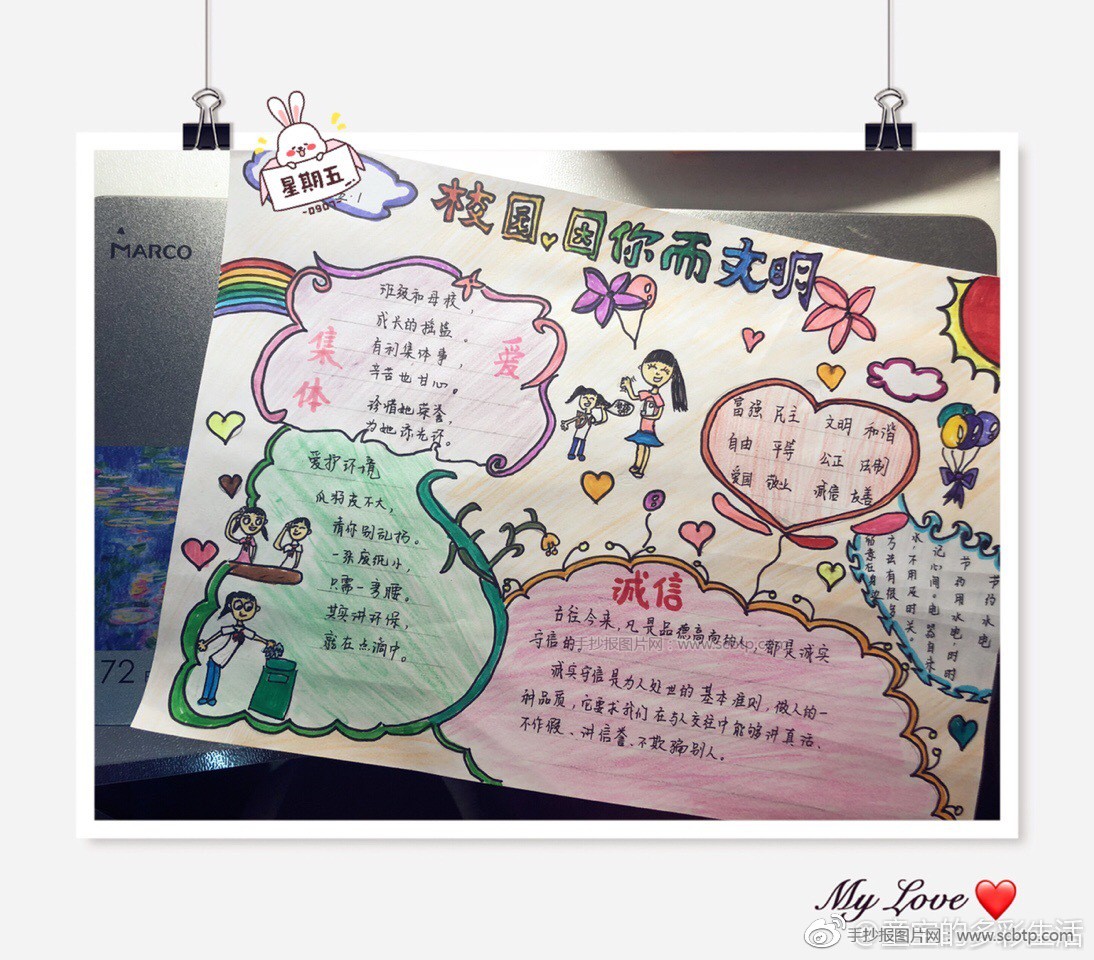 星期五
-0907-
MARCO
校园因你而文明
爱
集
体
班级和母校，
成长的摇篮。
有利集体事，
辛苦也甘心。
珍惜她荣誉，
为她添光环。
爱护环境
瓜狗皮不大，
请你别乱扔。
一张废纸小，
只需一弯腰。
其实讲环保，
就在点滴中。
富强 民主 文明 和谐
自由 平等 公正 法制
爱国 敬业 诚信 友善
节约水电
节约用水电，时时
记心间。电器自来
水，不用及时关。
方法有很多
诚信
古往今来，凡是品德高尚的人，都是诚实
守信的
手抄报图片网：www.scbtp.co
诚实守信是为人处世的基本准则，做人的一
种品质，它要求我们在与人交往中能够讲真话、
不作假、讲信誉、不欺骗别人。
72
My Love
@童童的多彩生活
手抄报图片网：www.scbtp.com